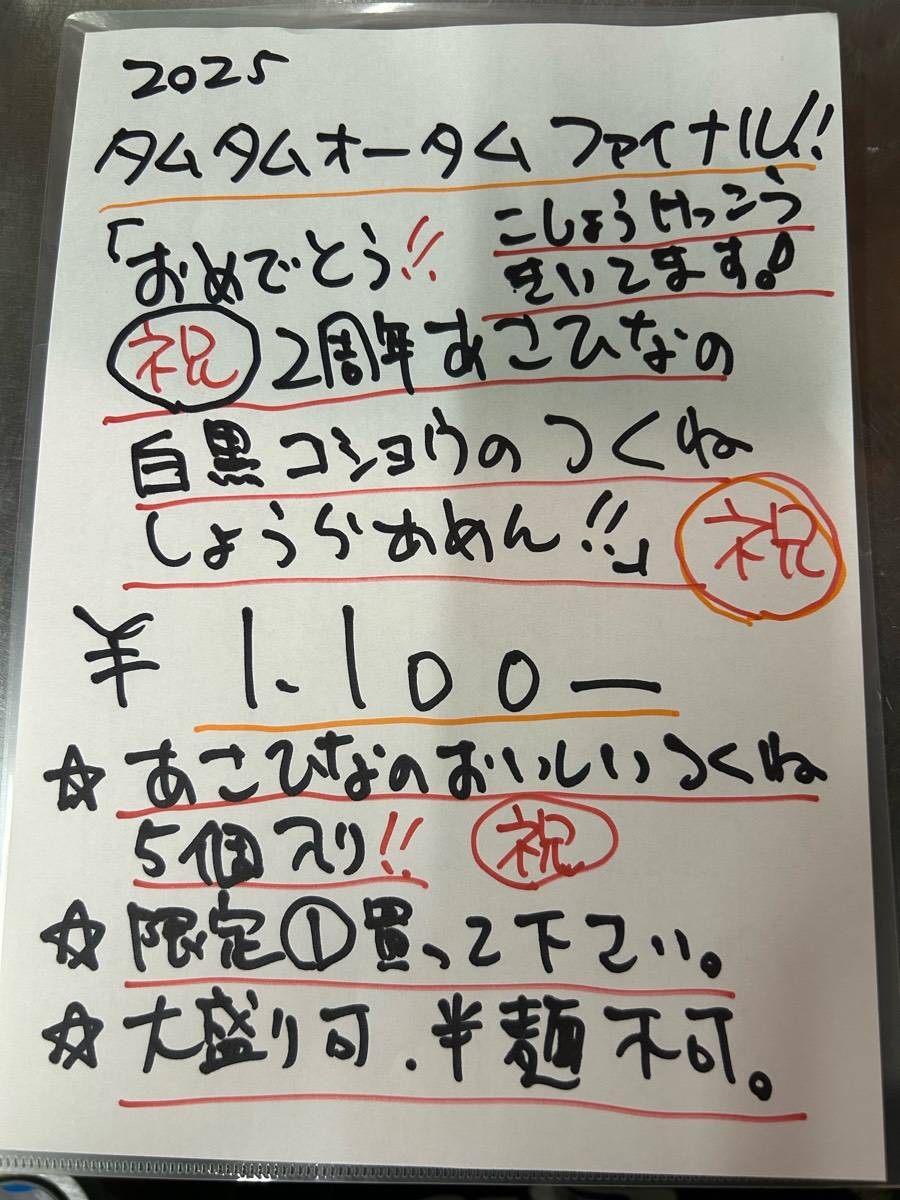 2025
タムタムオータムファイナル!!
「おめでとう!!
こしょうけっこう
きいてます!
祝 2周年あさひなの
白黒コショウのつくね
しょうらあめん!!」 祝
¥1.100ー
☆あさひなのおいしいつくね
5個入り!! 祝
☆限定①買って下さい。
☆大盛り可.半麺不可。